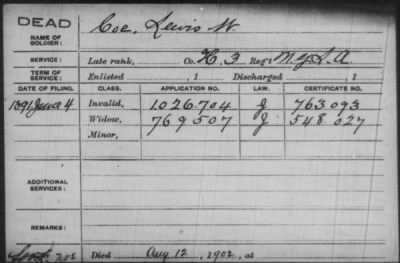 DEAD
NAME OF SOLDIER: Coe, Lewis W.
SERVICE: Late rank, Co. H, 3 Reg't N.Y.L.A.
TERM OF SERVICE: Enlisted , 1 Discharged , 1
DATE OF FILING. CLASS. APPLICATION NO. LAW. CERTIFICATE NO.
1891 June 4 Invalid, 1.026.704 J 763.093
Widow, 769507 J 548.027
Minor,
ADDITIONAL SERVICES:
REMARKS:
Died Aug 12, 1902, at